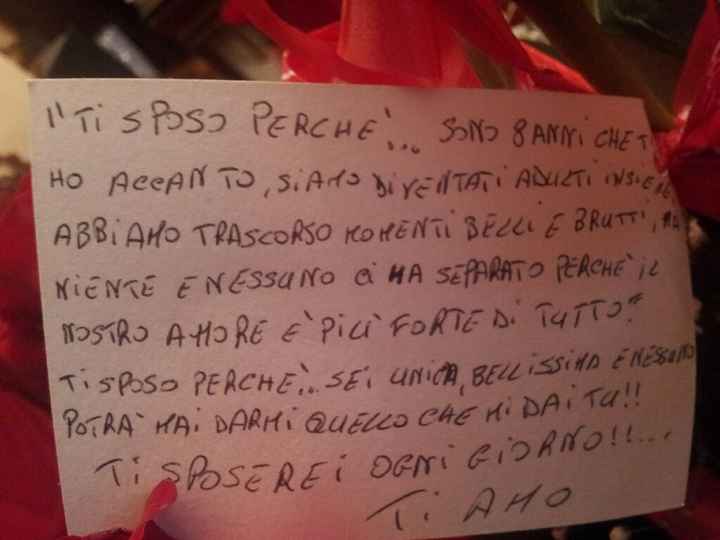 "TI SPOSO PERCHE'... SONO 8 ANNI CHE T
HO ACCANTO, SIAMO DIVENTATI ADULTI INSIEME
ABBIAMO TRASCORSO MOMENTI BELLI E BRUTTI, MA
NIENTE E NESSUNO CI HA SEPARATO PERCHE' IL
NOSTRO AMORE E' PIU' FORTE DI TUTTO"
TI SPOSO PERCHE'... SEI UNICA, BELLISSIMA E NESSUNO
POTRA' MAI DARMI QUELLO CHE MI DAI TU!!
TI SPOSEREI OGNI GIORNO!!...
TI AMO